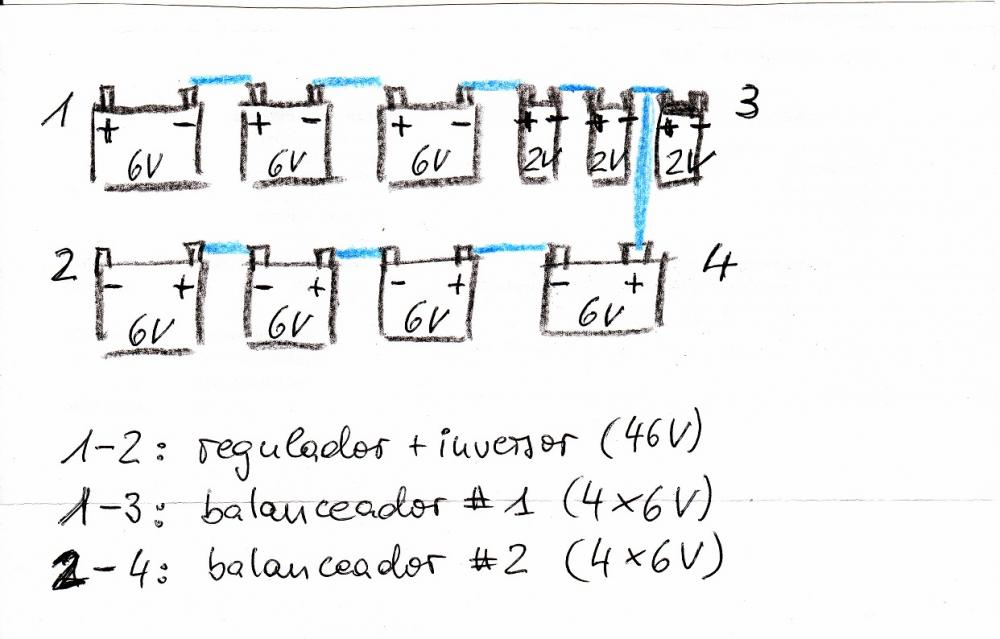 1 + - + - + - + - + - + - 3
6V 6V 6V 2V 2V 2V
2 - + - + - + - + 4
6V 6V 6V 6V
1-2: regulador + inversor (46V)
1-3: balanceador #1 (4x6V)
2-4: balanceador #2 (4x6V)